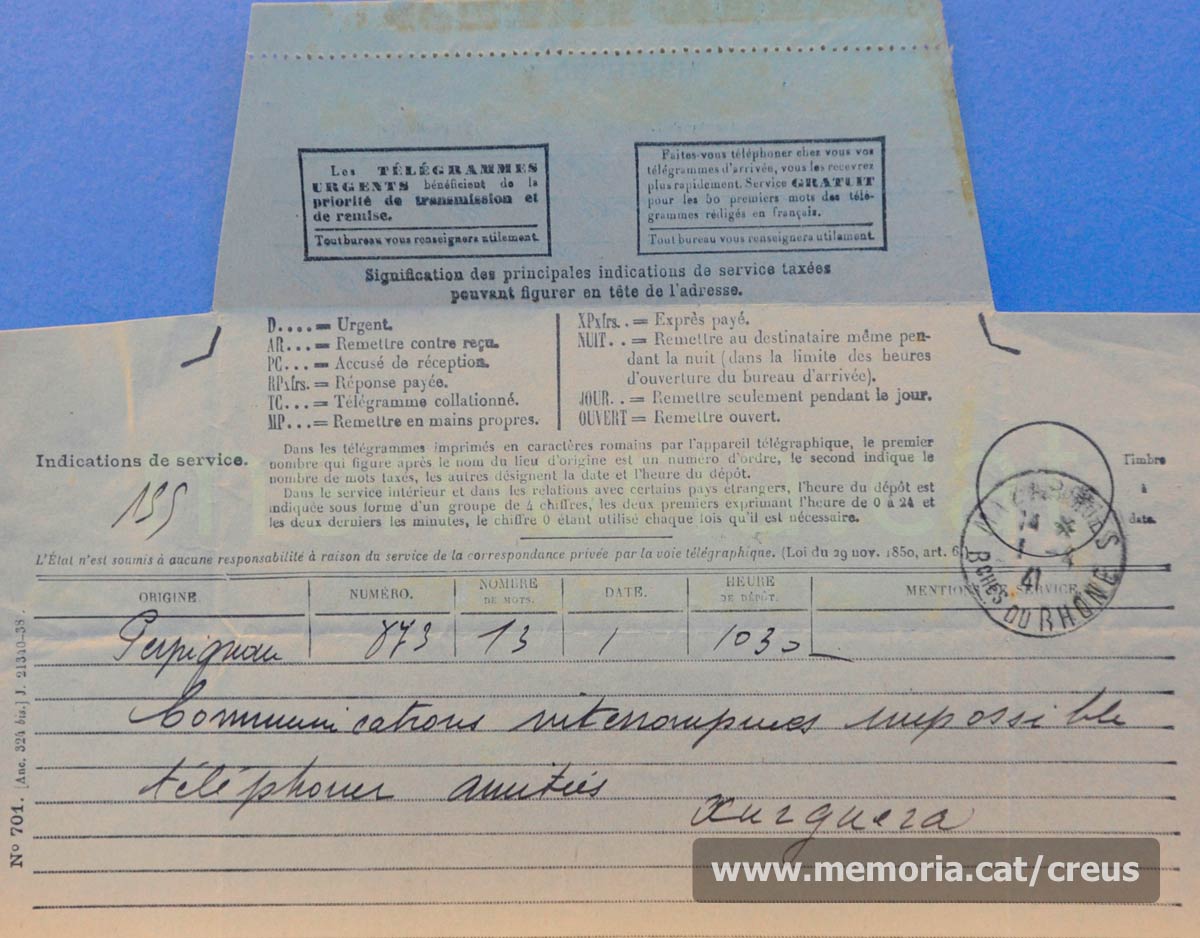 Les TÉLÉGRAMMES
URGENTS bénéficient de la
priorité de transmission et
de remise.
Tout bureau vous renseignera utilement.
Faites-vous téléphoner chez vous vos
télégrammes d'arrivée, vous les recevrez
plus rapidement. Service GRATUIT
pour les 50 premiers mots des télé-
grammes rédigés en français.
Tout bureau vous renseignera utilement.
Signification des principales indications de service taxées
pouvant figurer en tête de l'adresse.
D....= Urgent.
AR...= Remettre contre reçu.
PC...= Accusé de réception.
RPxfrs.= Réponse payée.
TC...= Télégramme collationné.
MP...= Remettre en mains propres.
XPxfrs..= Exprès payé.
NUIT..= Remettre au destinataire même pen-
dant la nuit (dans la limite des heures
d'ouverture du bureau d'arrivée).
JOUR..= Remettre seulement pendant le jour.
OUVERT= Remettre ouvert.
Indications de service.
195
Dans les télégrammes imprimés en caractères romains par l'appareil télégraphique, le premier
nombre qui figure après le nom du lieu d'origine est un numéro d'ordre, le second indique le
nombre de mots taxés, les autres désignent la date et l'heure du dépôt.
Dans le service intérieur et dans les relations avec certains pays étrangers, l'heure du dépôt est
indiquée sous forme d'un groupe de 4 chiffres, les deux premiers exprimant l'heure de 0 à 24 et
les deux derniers les minutes, le chiffre 0 étant utilisé chaque fois qu'il est nécessaire.
Timbre
à
date.
14 *
1 - 4
41
BCHES DU RHONE
L'État n'est soumis à aucune responsabilité à raison du service de la correspondance privée par la voie télégraphique. (Loi du 29 nov. 1850, art. 6
ORIGINE. NUMÉRO. NOMBRE DE MOTS. DATE. HEURE DE DÉPÔT. MENTIONS SERVICE.
Perpignan 873 13 1 1030
Communications interrompues impossible
téléphoner amitiés
Xurguera
N° 701. [Anc. 324 bis.] J. 21340-38.
www.memoria.cat/creus